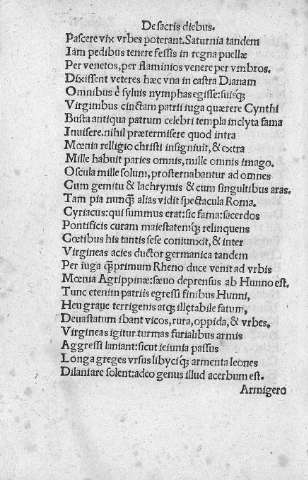 De sacris diebus.
Pascere vix vrbes poterant. Saturnia tandem
Iam pedibus tenere fessis in regna puellæ
Per venetos, per flaminios venere per vmbros.
Dixissent veteres hæc vna in castra Dianam
Omnibus è syluis nymphas egisse: suisq;
Virginibus cinctam patrii iuga quærere Cynthi
Busta antiqua patrum celebri templa inclyta fama
Inuisere. nihil prætermisere quod intra
Mœnia religio christi insigniuit, & extra
Mille habuit paries omnis, mille omnis imago.
Oscula mille soluni, prosternabantur ad omnes
Cum gemitu & lachrymis & cum singultibus aras.
Tam pia nunq̃ alias vidit spectacula Roma.
Cyriacus: qui summus erat: sic fama: sacerdos
Pontificis curam maiestatemq; relinquens
Cœtibus his tantis sese coniunxit, & inter
Virgineas acies ductor germanica tandem
Per iuga q̃primum Rheno duce venit ad vrbis
Mœnia Agrippinæ: sæuo deprensus ab Hunno est.
Tunc etenim patriis egressi finibus Hunni,
Heu graue terrigenis atq; illætabile fatum,
Deuastatum ibant vicos, rura, oppida, & vrbes.
Virgineas igitur turmas furialibus armis
Aggressi laniant: sicut ieiunia passus
Longa greges vrsus libyciq; armenta leones
Dilaniare solent: adeo genus illud acerbum est.
Armigero